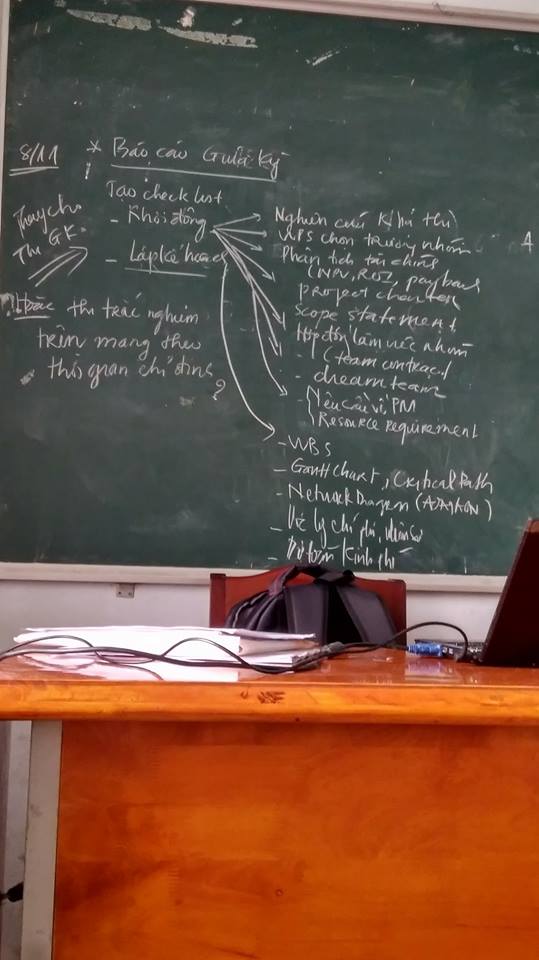 8/11
* Báo cáo Giữa kỳ
Tạo check list
- Khởi động
- Lập kế hoạch
Thay cho
Thi GK
Hoặc thi trắc nghiệm
trên mạng theo
thời gian chỉ định
?
Nghiên cứu khả thi
WPS chọn trưởng nhóm
Phân tích tài chính
(NPV, ROI, payback
project charter
scope statement
Hợp đồng làm việc nhóm
(team contract)
- dream team
- Yêu cầu về PM
Resource requirement
- WBS
- Gantt Chart, Critical Path
- Network Diagram (AOA, AON)
- chi phí
- Dự toán kinh phí
A